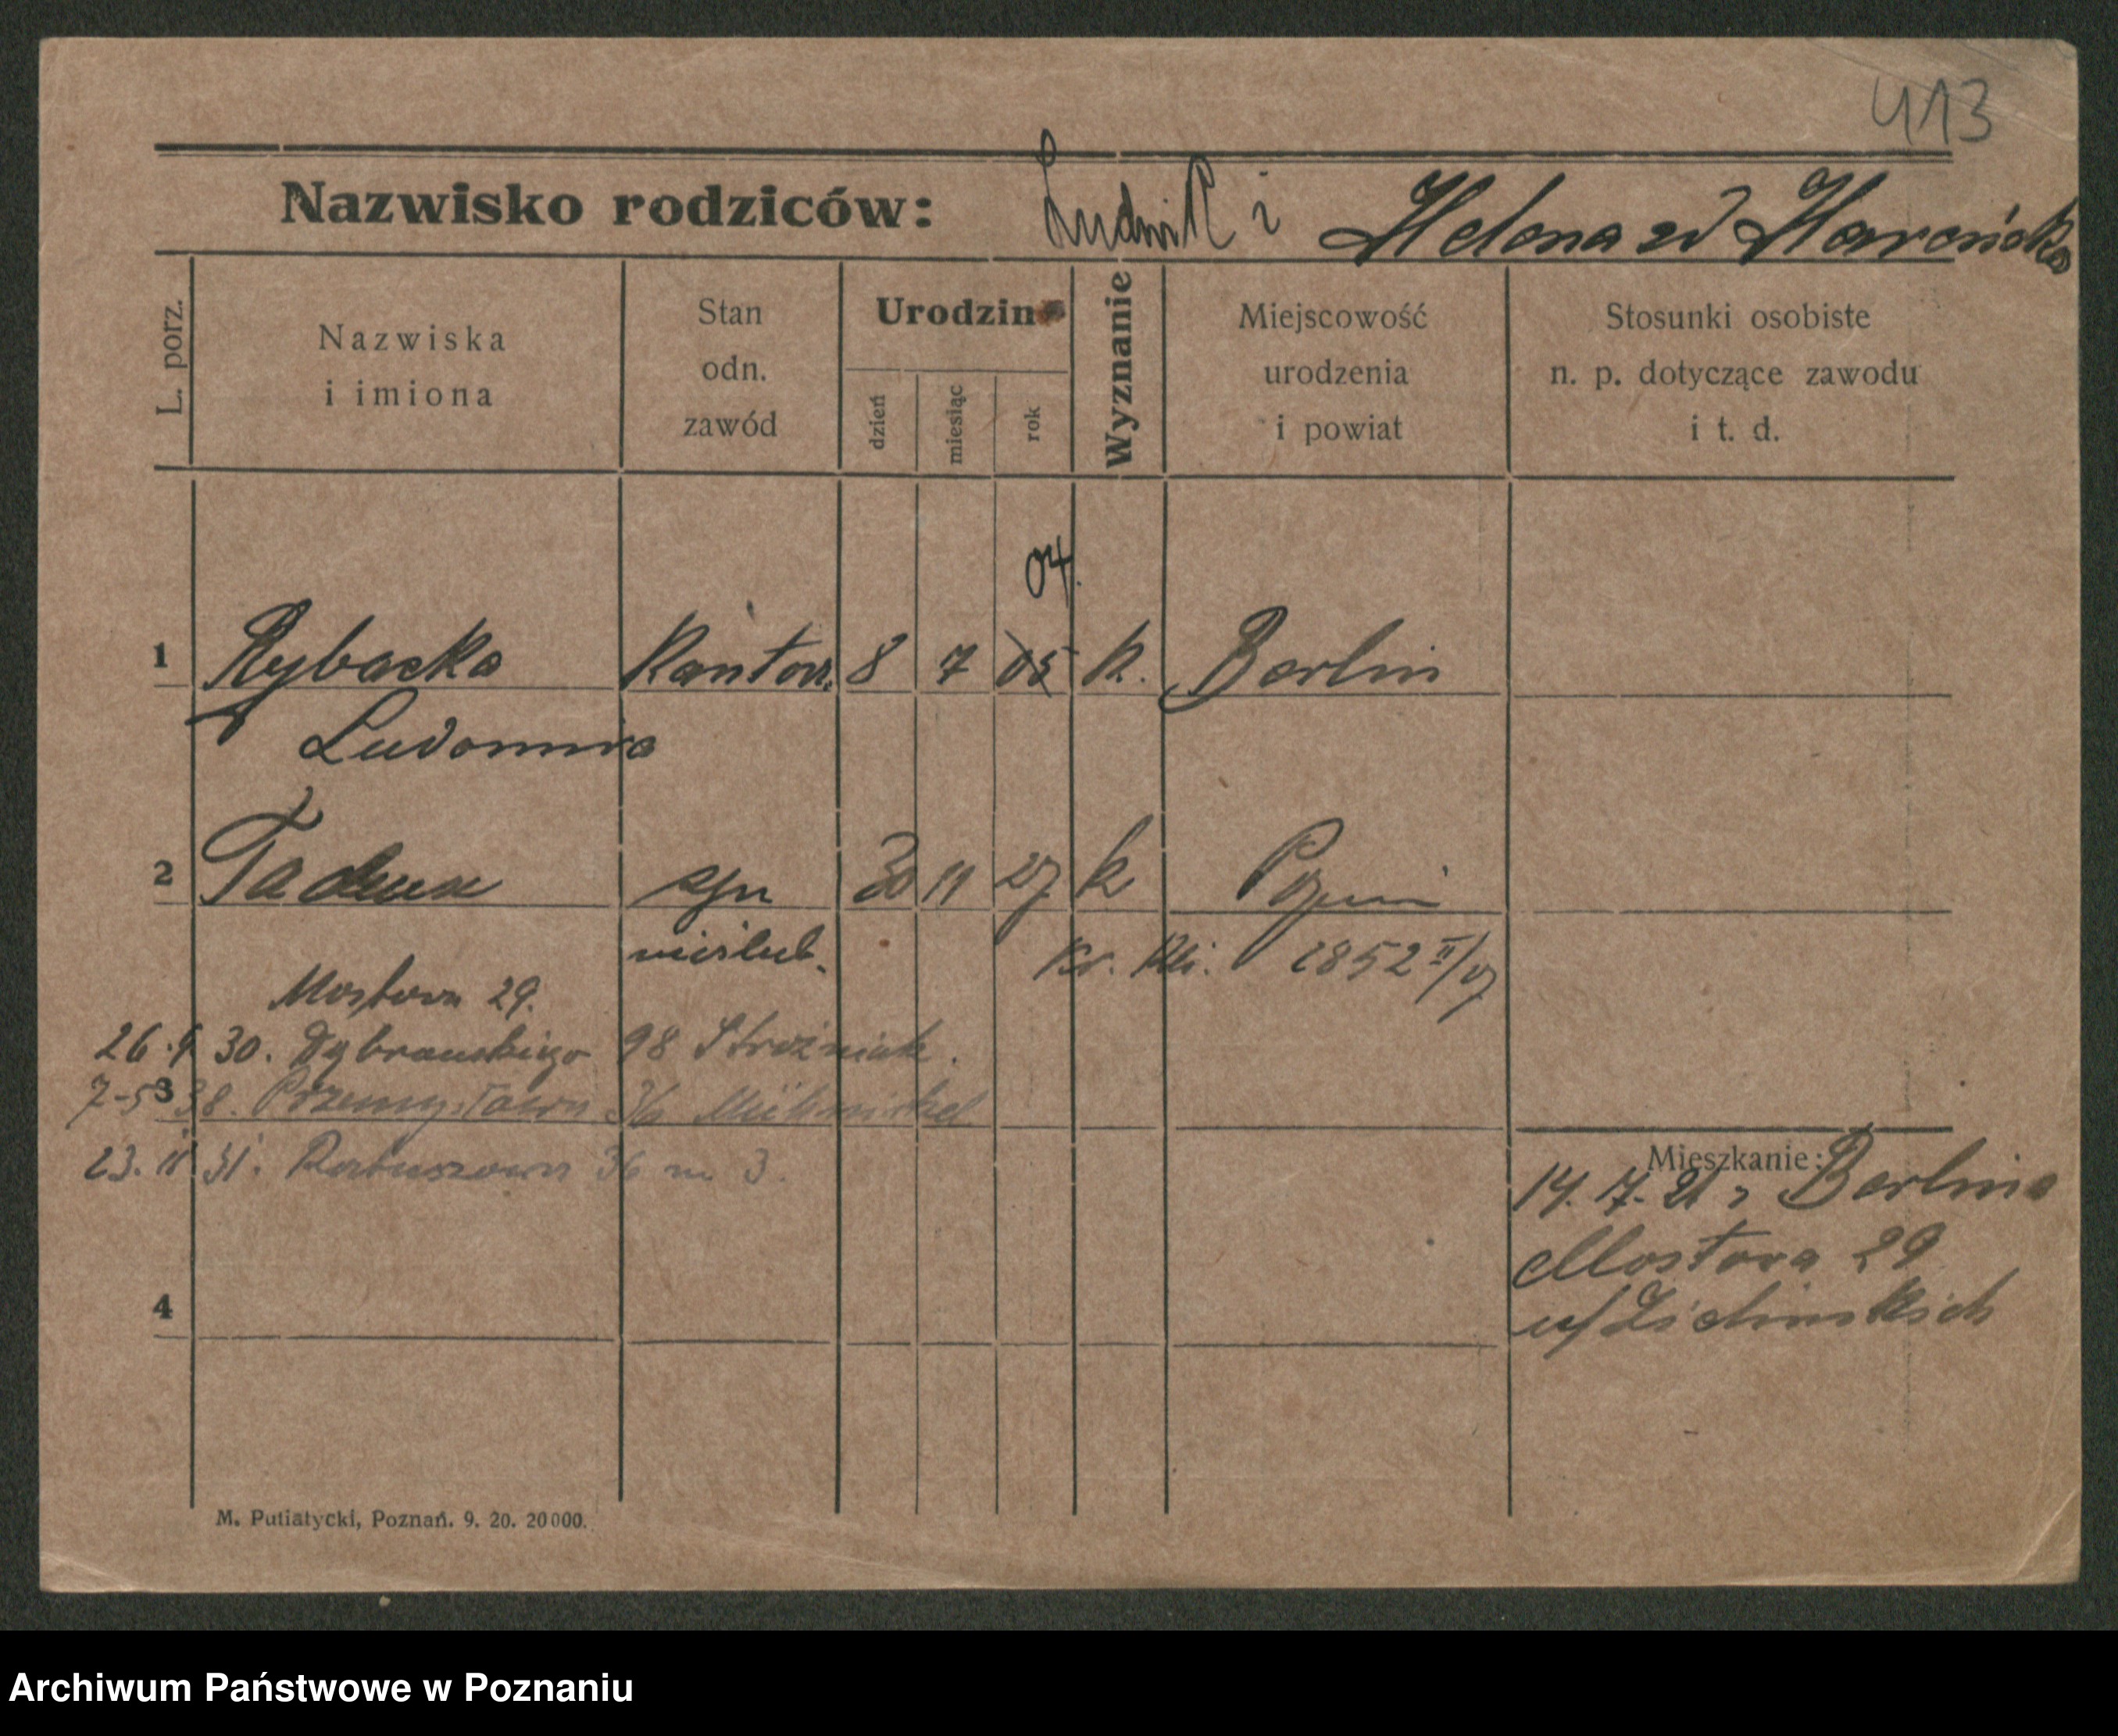 413
Nazwisko rodziców: Ludwik i Helena zd
L. porz.
Nazwiska
i imiona
Stan
odn.
zawód
Urodzin
dzień
miesiąc
rok
Wyznanie
Miejscowość
urodzenia
i powiat
Stosunki osobiste
n. p. dotyczące zawodu
i t. d.
04.
1 Rybacka 8 7 05 k. Berlin
Ludomira
2 Tadeusz syn 30 11 27 k
nieślub. 1852 II/27
Mostowa 29.
26. 9 30. 98 Stroźniak.
38. Przemysłowa 36
23. 31. Ratuszowa 36 m 3.
Mieszkanie:
14. 7. 21 z Berlina
Mostowa 29
4
M. Putiatycki, Poznań. 9. 20. 20000.
Archiwum Państwowe w Poznaniu